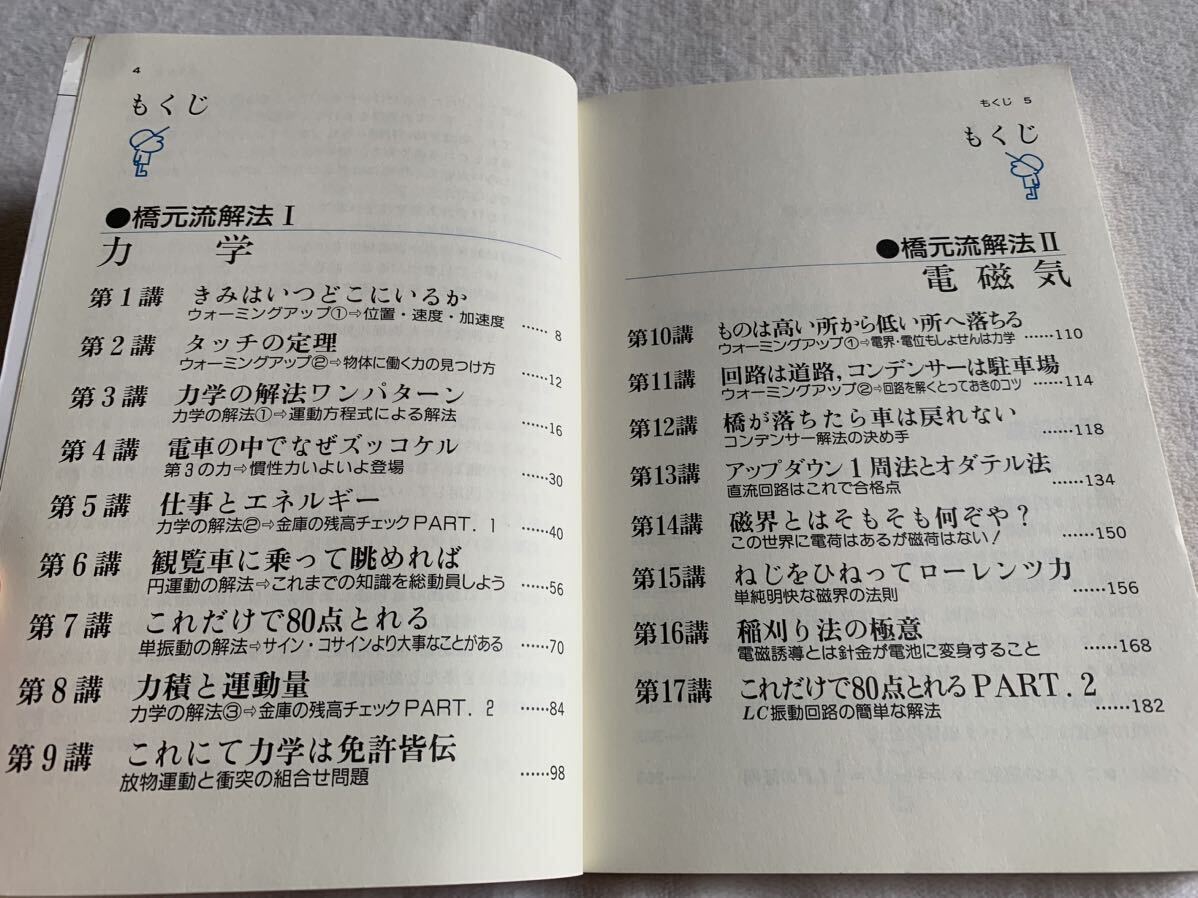 4
もくじ
●橋元流解法Ⅰ
力 学
第1講 きみはいつどこにいるか
ウォーミングアップ①⇨位置・速度・加速度 ……8
第2講 タッチの定理
ウォーミングアップ②⇨物体に働く力の見つけ方 ……12
第3講 力学の解法ワンパターン
力学の解法①⇨運動方程式による解法 ……16
第4講 電車の中でなぜズッコケル
第3の力⇨慣性力いよいよ登場 ……30
第5講 仕事とエネルギー
力学の解法②⇨金庫の残高チェックPART.1 ……40
第6講 観覧車に乗って眺めれば
円運動の解法⇨これまでの知識を総動員しよう ……56
第7講 これだけで80点とれる
単振動の解法⇨サイン・コサインより大事なことがある ……70
第8講 力積と運動量
力学の解法③⇨金庫の残高チェックPART.2 ……84
第9講 これにて力学は免許皆伝
放物運動と衝突の組合せ問題 ……98
もくじ 5
もくじ
●橋元流解法Ⅱ
電磁気
第10講 ものは高い所から低い所へ落ちる
ウォーミングアップ①⇨電界・電位もしょせんは力学 ……110
第11講 回路は道路，コンデンサーは駐車場
ウォーミングアップ②⇨回路を解くとっておきのコツ ……114
第12講 橋が落ちたら車は戻れない
コンデンサー解法の決め手 ……118
第13講 アップダウン1周法とオダテル法
直流回路はこれで合格点 ……134
第14講 磁界とはそもそも何ぞや？
この世界に電荷はあるが磁荷はない！ ……150
第15講 ねじをひねってローレンツ力
単純明快な磁界の法則 ……156
第16講 稲刈り法の極意
電磁誘導とは針金が電池に変身すること ……168
第17講 これだけで80点とれるPART.2
LC振動回路の簡単な解法 ……182